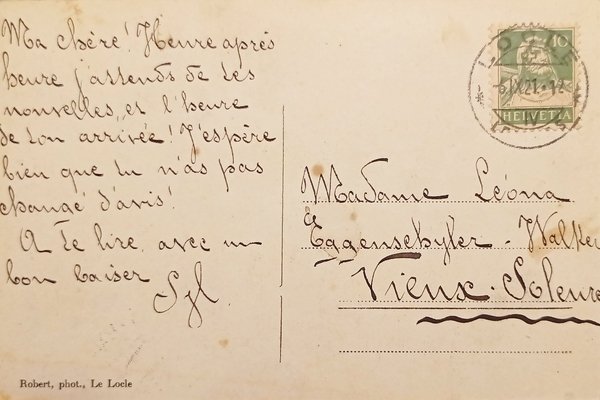 Ma chère! Heure après
heure j'attends de tes
nouvelles, et l'heure
de ton arrivée! J'espère
bien que tu n'as pas
changé d'avis!
A te lire, avec un
bon baiser
Syl.
10
HELVETIA
LOCLE
Madame Léona
Eggenschyler - Walker
Vieux-Soleure
Robert, phot., Le Locle